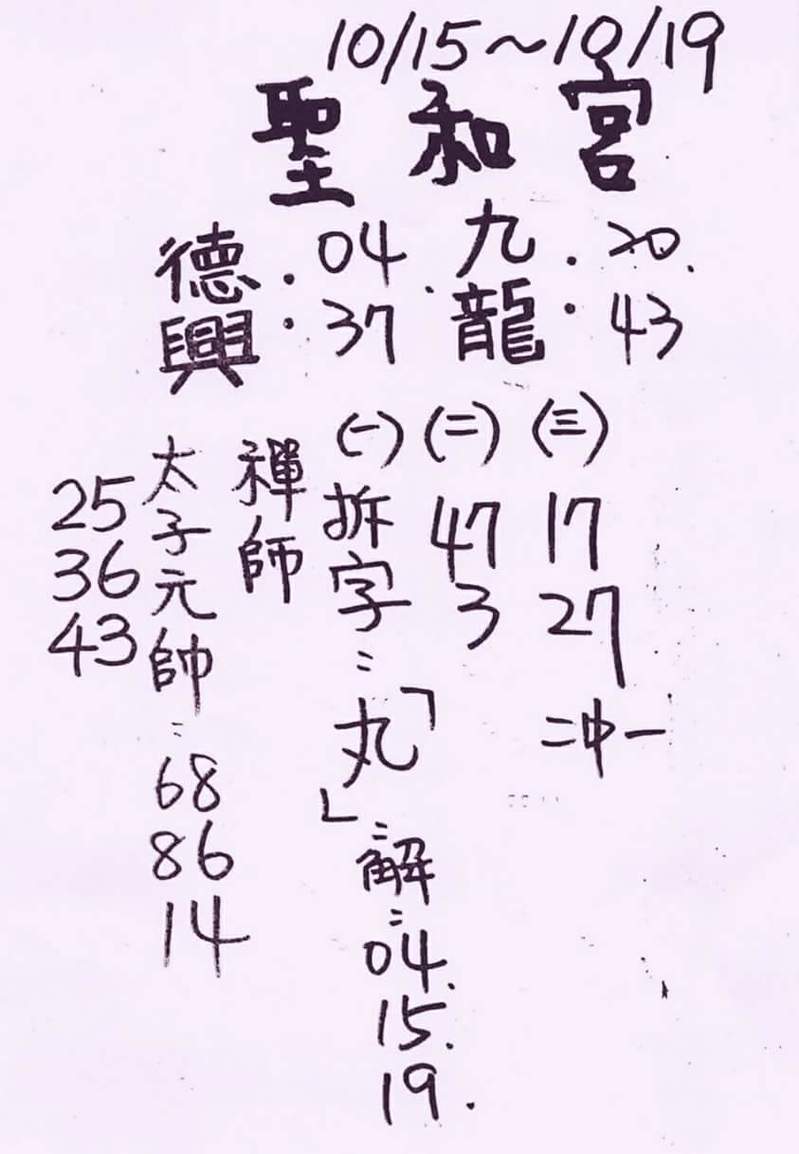 10/15～10/19
聖和宮
德興．04．37．
九龍．20．43
(一)(二)(三)
17
27
二中一
47
3
拆字：「丸」：解：04.15.19.
禪師
太子元帥：68 86 14
25
36
43